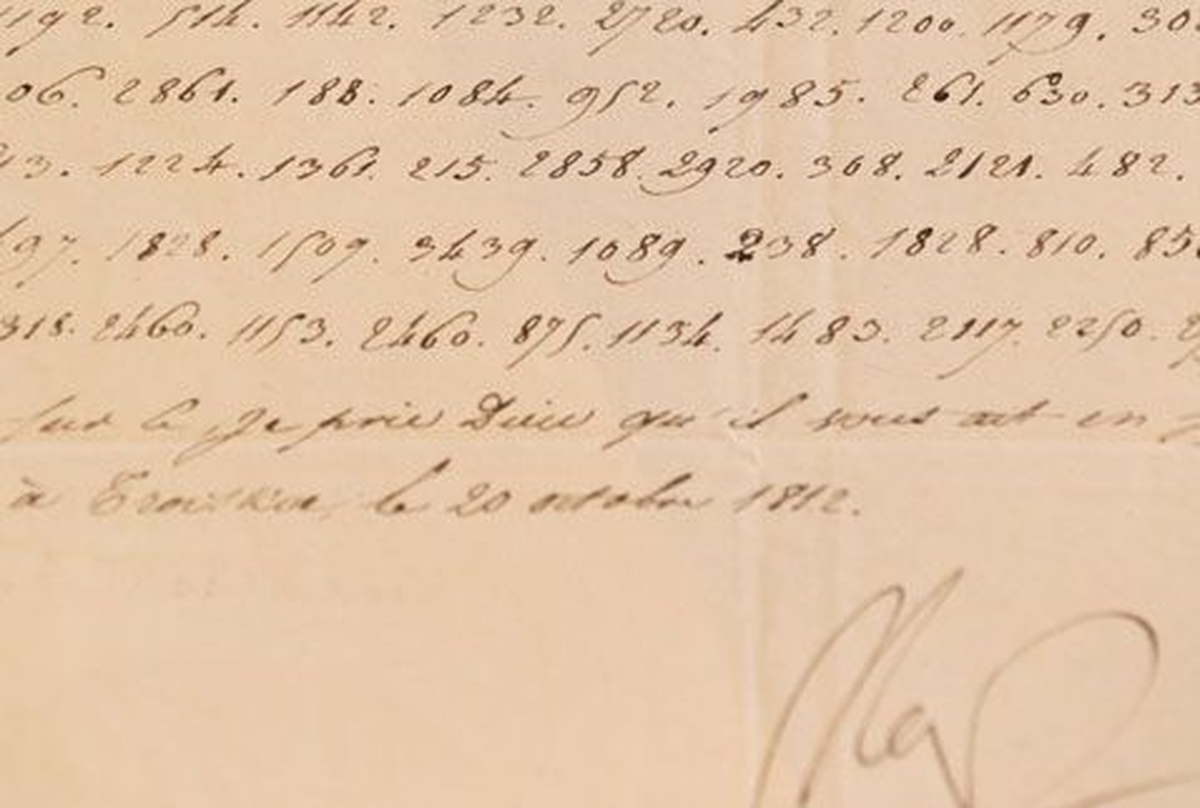 1192. 514. 1142. 1232. 2720. 432. 1200. 1179. 30
06. 2861. 188. 1084. 952. 1985. 261. 630. 313
13. 1224. 1361. 215. 2858. 2920. 368. 2121. 482.
97. 1828. 1509. 3439. 1089. 238. 1828. 810. 85
318. 2460. 1153. 2460. 875. 1134. 1483. 2117. 2250.
sur ce je prie Dieu qu'il vous ait en
à Troitskoe, le 20 octobre 1812.
Nap